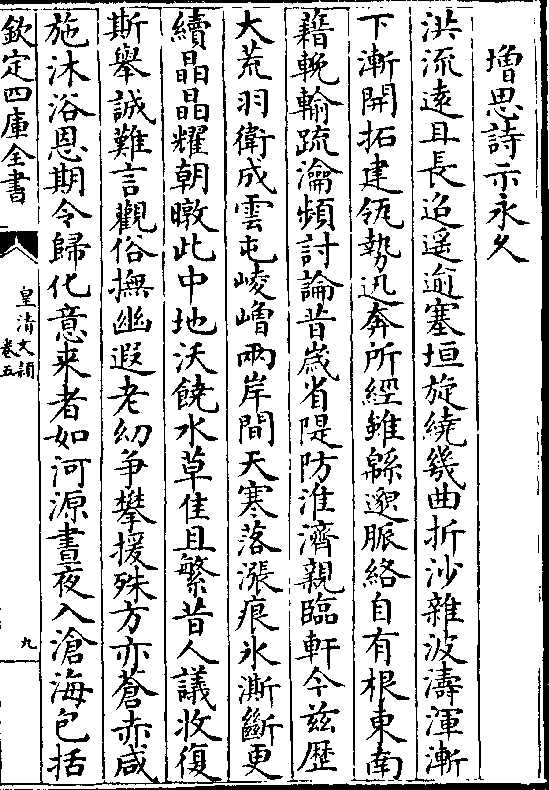 增思詩示永久
洪流遠且長迢遥逾塞垣旋繞幾曲折沙雜波濤渾漸
下漸開拓建瓴勢迅奔所經雖緜邈脈絡自有根東南
藉輓輸疏瀹頻討論昔嵗省隄防淮濟親臨軒今兹歴
大荒羽衛成雲屯崚嶒兩岸間天寒落漲痕氷澌斷更
續晶晶耀朝暾此中地沃饒水草佳且繁昔人議收復
斯舉誠難言觀俗撫幽遐老幼争攀援殊方亦蒼赤咸
施沐浴恩期令歸化意来者如河源晝夜入滄海包括
欽定四庫全書
皇清文頴
卷五
九